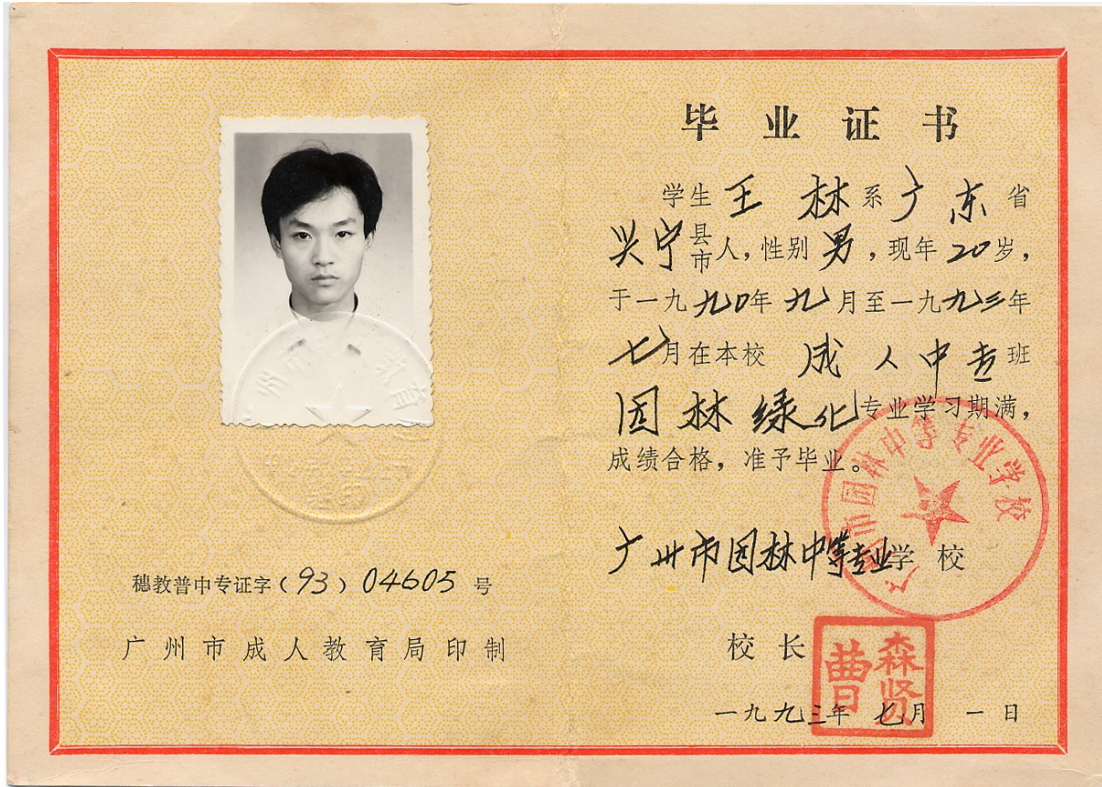 毕业证书
学生王林系广东省
兴宁县市人，性别男，现年20岁，
于一九九0年九月至一九九三年
七月在本校成人中专班
园林绿化专业学习期满，
成绩合格，准予毕业。
广州市园林中等专业学校
校长
曹森贤
一九九三年七月一日
广州市园林中等专业学校
穗教普中专证字（93）04605号
广州市成人教育局印制